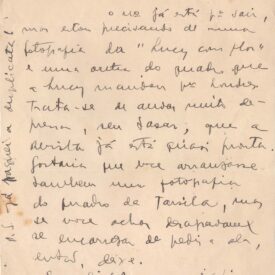 o no já está pª sair,
mas estou precisando de uma
fotografia da "Lucy com flor"
e uma outra do quadro que
a Lucy mandou pª Londres
trata-se de andar muito de-
pressa, seu Lasar, que a
revista já está quasi pronta.
Gostaria que voce arranjasse
tambem uma fotografia
do quadro de Tarsila, mas
se voce achar desagradavel
se encarregar de pedir a ela,
então, deixe.
P.S. Já paguei a duplicata!